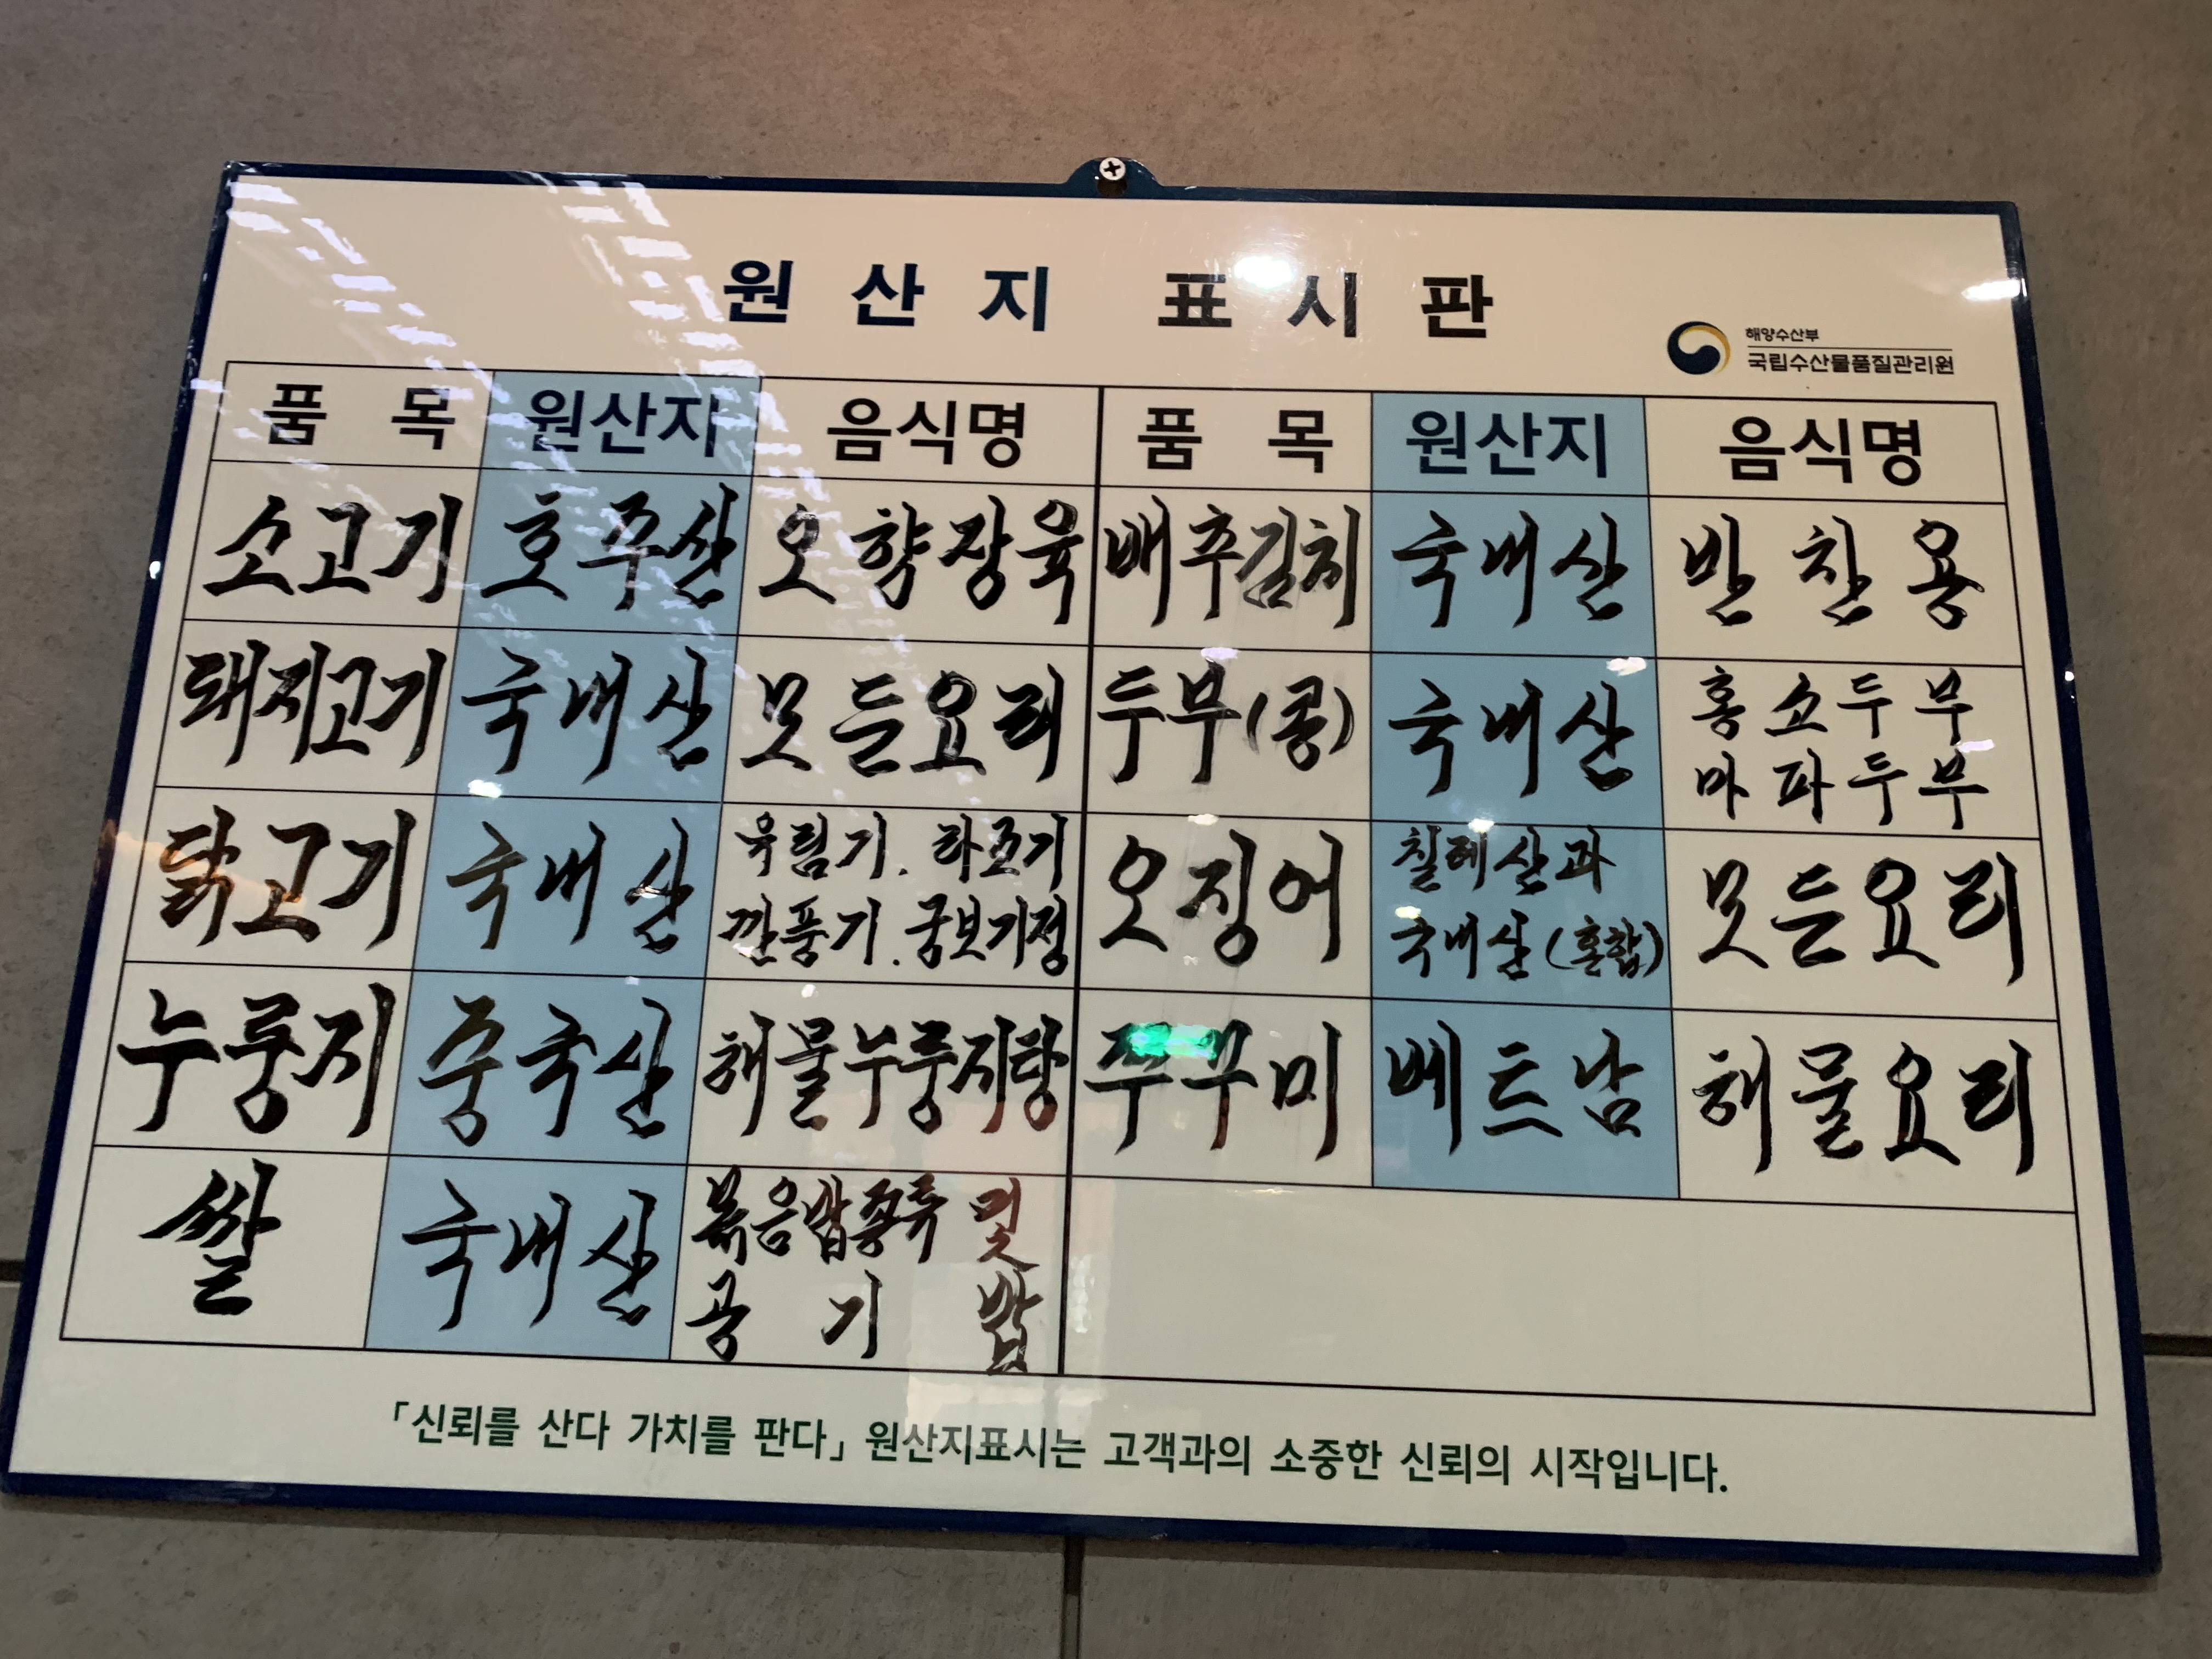 원산지 표시판
해양수산부
국립수산물품질관리원
품목 원산지 음식명 품목 원산지 음식명
소고기 호주산 오향장육 배추김치 국내산 반찬용
돼지고기 국내산 모든요리 두부(콩) 국내산 홍소두부
마파두부
닭고기 국내산 유림기. 라조기
깐풍기. 궁보기정
오징어 칠레산과
국내산(혼합)
모든요리
누룽지 중국산 해물누룽지탕 쭈꾸미 베트남 해물요리
쌀 국내산 볶음밥종류 및
공기밥
「신뢰를 산다 가치를 판다」 원산지표시는 고객과의 소중한 신뢰의 시작입니다.